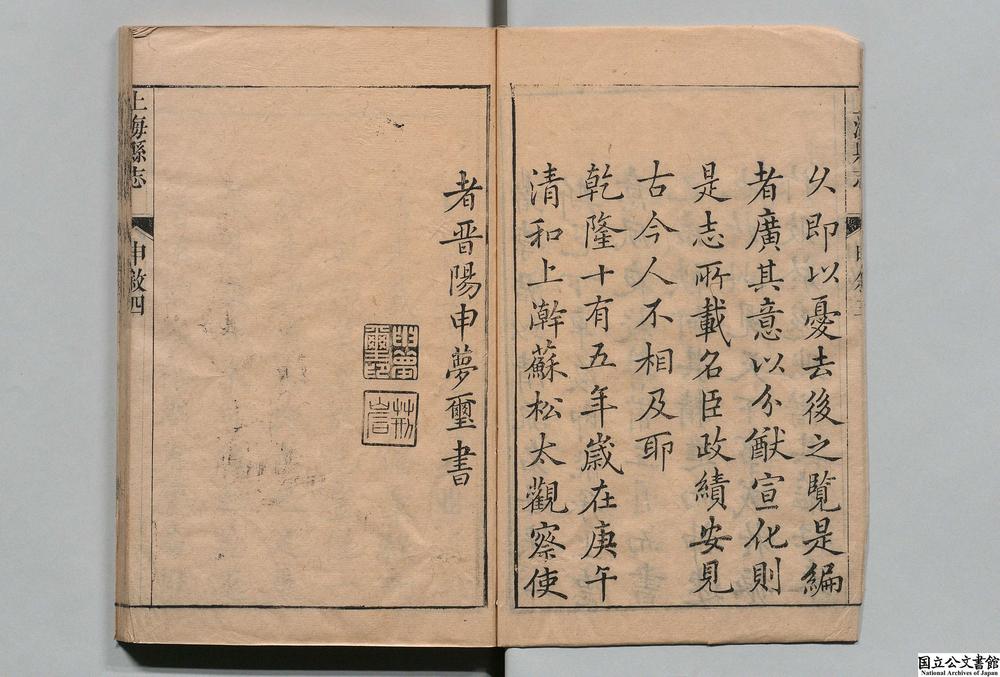 久即以憂去後之覽是編
者廣其意以分猷宣化則
是志所載名臣政績安見
古今人不相及耶
乾隆十有五年歲在庚午
清和上澣蘇松太觀察使
者晋陽申夢璽書
申夢璽印
上海縣志
申敘四
国立公文書館
National Archives of Japan